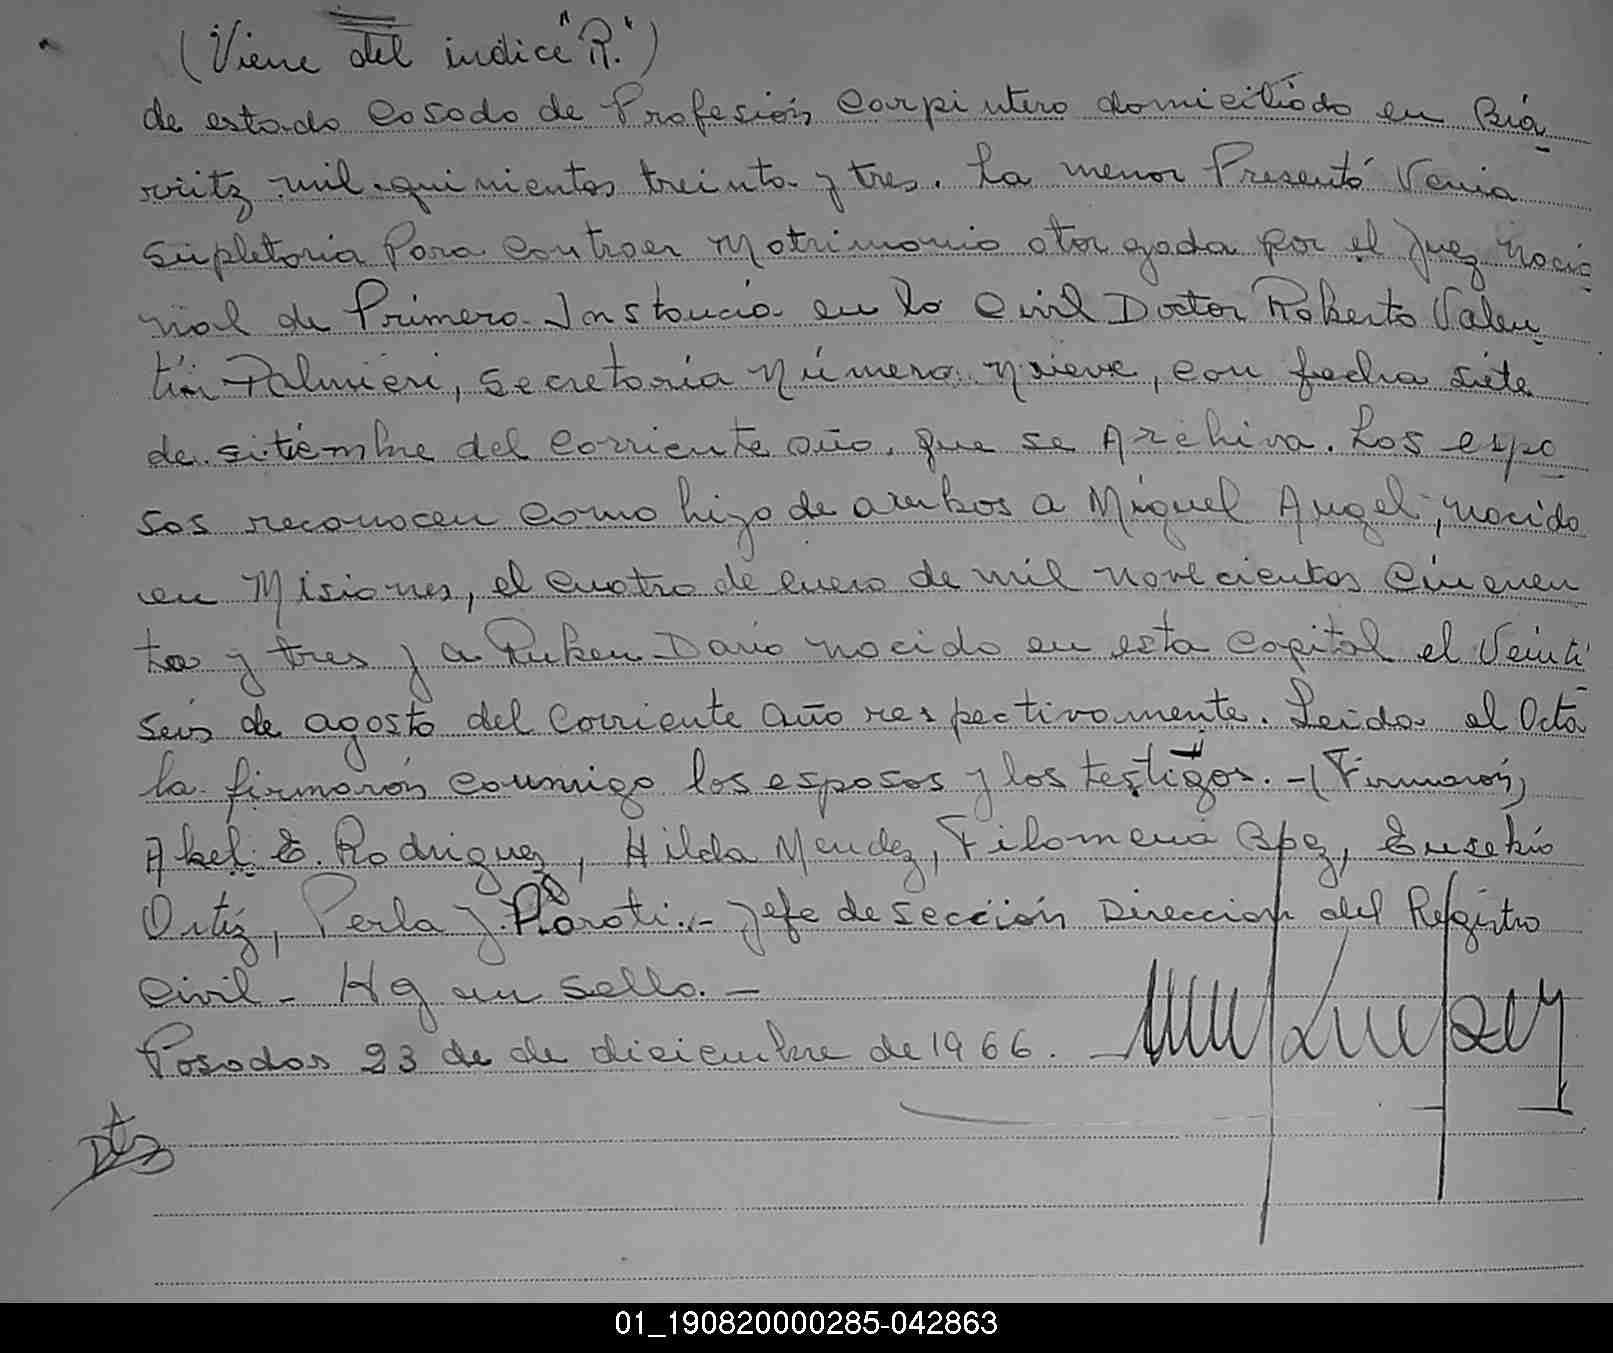 (Viene del indice "R.")
de estado Casado de Profesión Carpintero domiciliado en Bia-
rritz mil quinientos treinta y tres. La menor Presentó Venia
supletoria Para contraer Matrimonio otorgada por el Juez Nacio-
nal de Primera Instancia en lo Civil Doctor Roberto Valen-
tín Palmieri, Secretaría Número Nueve, con fecha siete
de setiembre del corriente año, que se Archiva. Los espo-
sos reconocen como hijo de ambos a Miguel Angel, nacido
en Misiones, el cuatro de enero de mil novecientos cincuen
ta y tres y a Ruben Dario nacido en esta Capital el Veinti-
seis de agosto del Corriente año respectivamente. Leida el Acta
la firmarón conmigo los esposos y los testigos. -(Firmarón)
Abel E. Rodriguez, Hilda Mendez, Filomena Eusebio
Ortíz, Perla J. Jefe de sección Direccion del Registro
Civil - Hg un sello. -
Posadas 23 de de diciembre de 1966. -
01_190820000285-042863